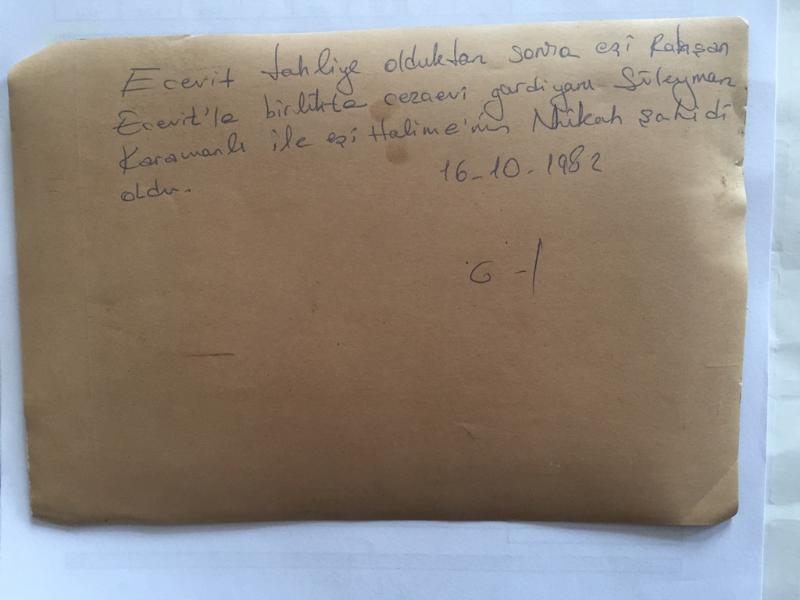 Ecevit tahliye olduktan sonra eşi Rahşan
Ecevit'le birlikte cezaevi gardiyanı Süleyman
Karamanlı ile eşi Halime'nin Nikah şahidi
oldu.
16-10-1982